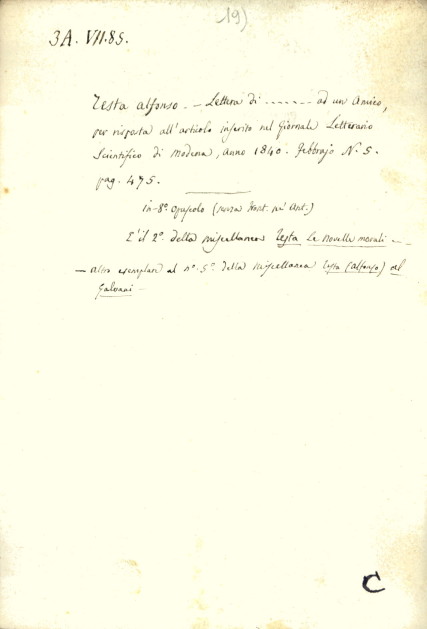 19)
3A. VII. 85.
Testa Alfonso. – Lettera di ------- ad un Amico,
per risposta all'articolo inserito nel Giornale Letterario
Scientifico di Modena, anno 1840. Febbrajo N. 5.
pag. 475.
in-8º. Opuscolo (senza front. nè Ant.)
E' il 2º. della miscellanea Testa Le Novelle morali –
– Altro esemplare al nº. 5º. della Miscellanea Testa (Alfonso) al
Galvani –
C